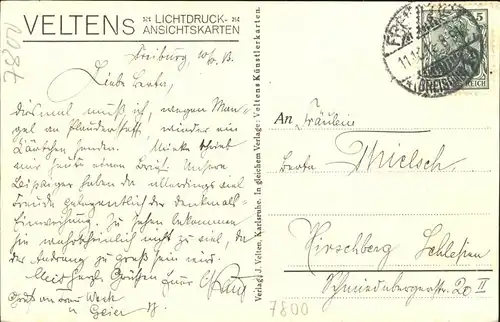 VELTENS
LICHTDRUCK-
ANSICHTSKARTEN
7800
Freiburg
Liebe Berta,
diesmal muß ich, wegen Man-
gel an Plauderstoff, wieder ein
Kärtchen senden. Mieke schrieb
mir heute einen Brief. Unsere
Leipziger haben da allerdings viel
Freude gelegentlich der Denkmals-
Einweihung. Zu sehen bekommen
sie wahrscheinlich nicht zu viel, da
der Andrang zu groß sein wird.
Mit herzl. Grüßen Euer
Gruß an
u. Geier
Verlag J. Velten, Karlsruhe. In gleichem Verlage: Veltens Künstlerkarten.
5
REICH
An Fräulein
Berta Mielsch
Hirschberg Schlesien
Schmiedebergerstr. 20 II
7800